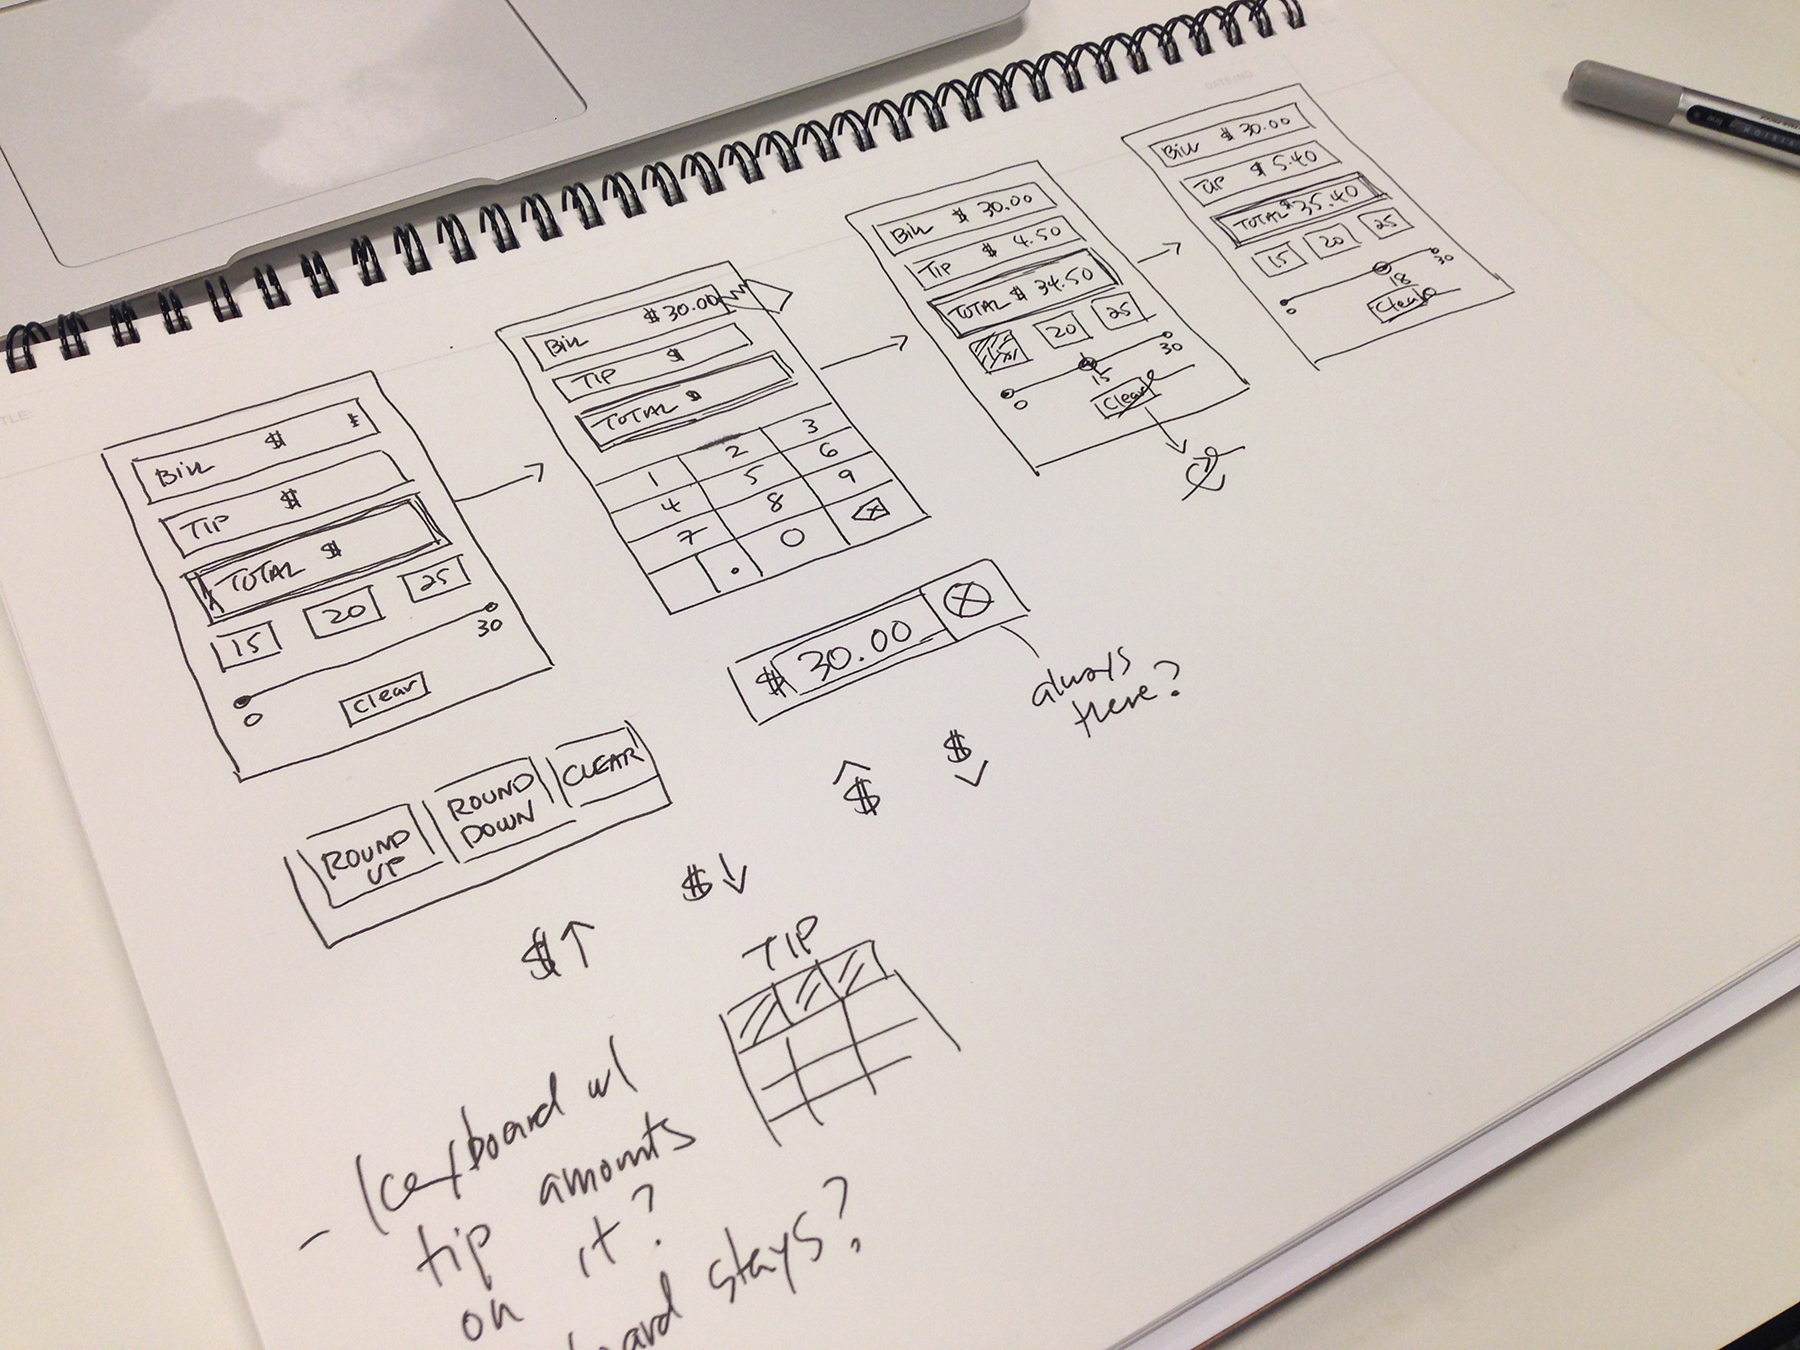 TLE:
DATE/NO.
Bill $
TIP $
TOTAL $
15 20 25
0 30
Clear
Bill $30.00
TIP $
TOTAL $
1 2 3
4 5 6
7 8 9
. 0
Bill $ 30.00
TIP $ 4.50
TOTAL $ 34.50
15 20 25
0 15 30
Clear
Bill $ 30.00
TIP $ 5.40
TOTAL $35.40
15 20 25
0 18 30
Clear
$ 30.00
always
here?
ROUND
UP
ROUND
DOWN
CLEAR
$
$
$↑
$↓
TIP
- keyboard w/
tip amounts
on it?
oard stays?